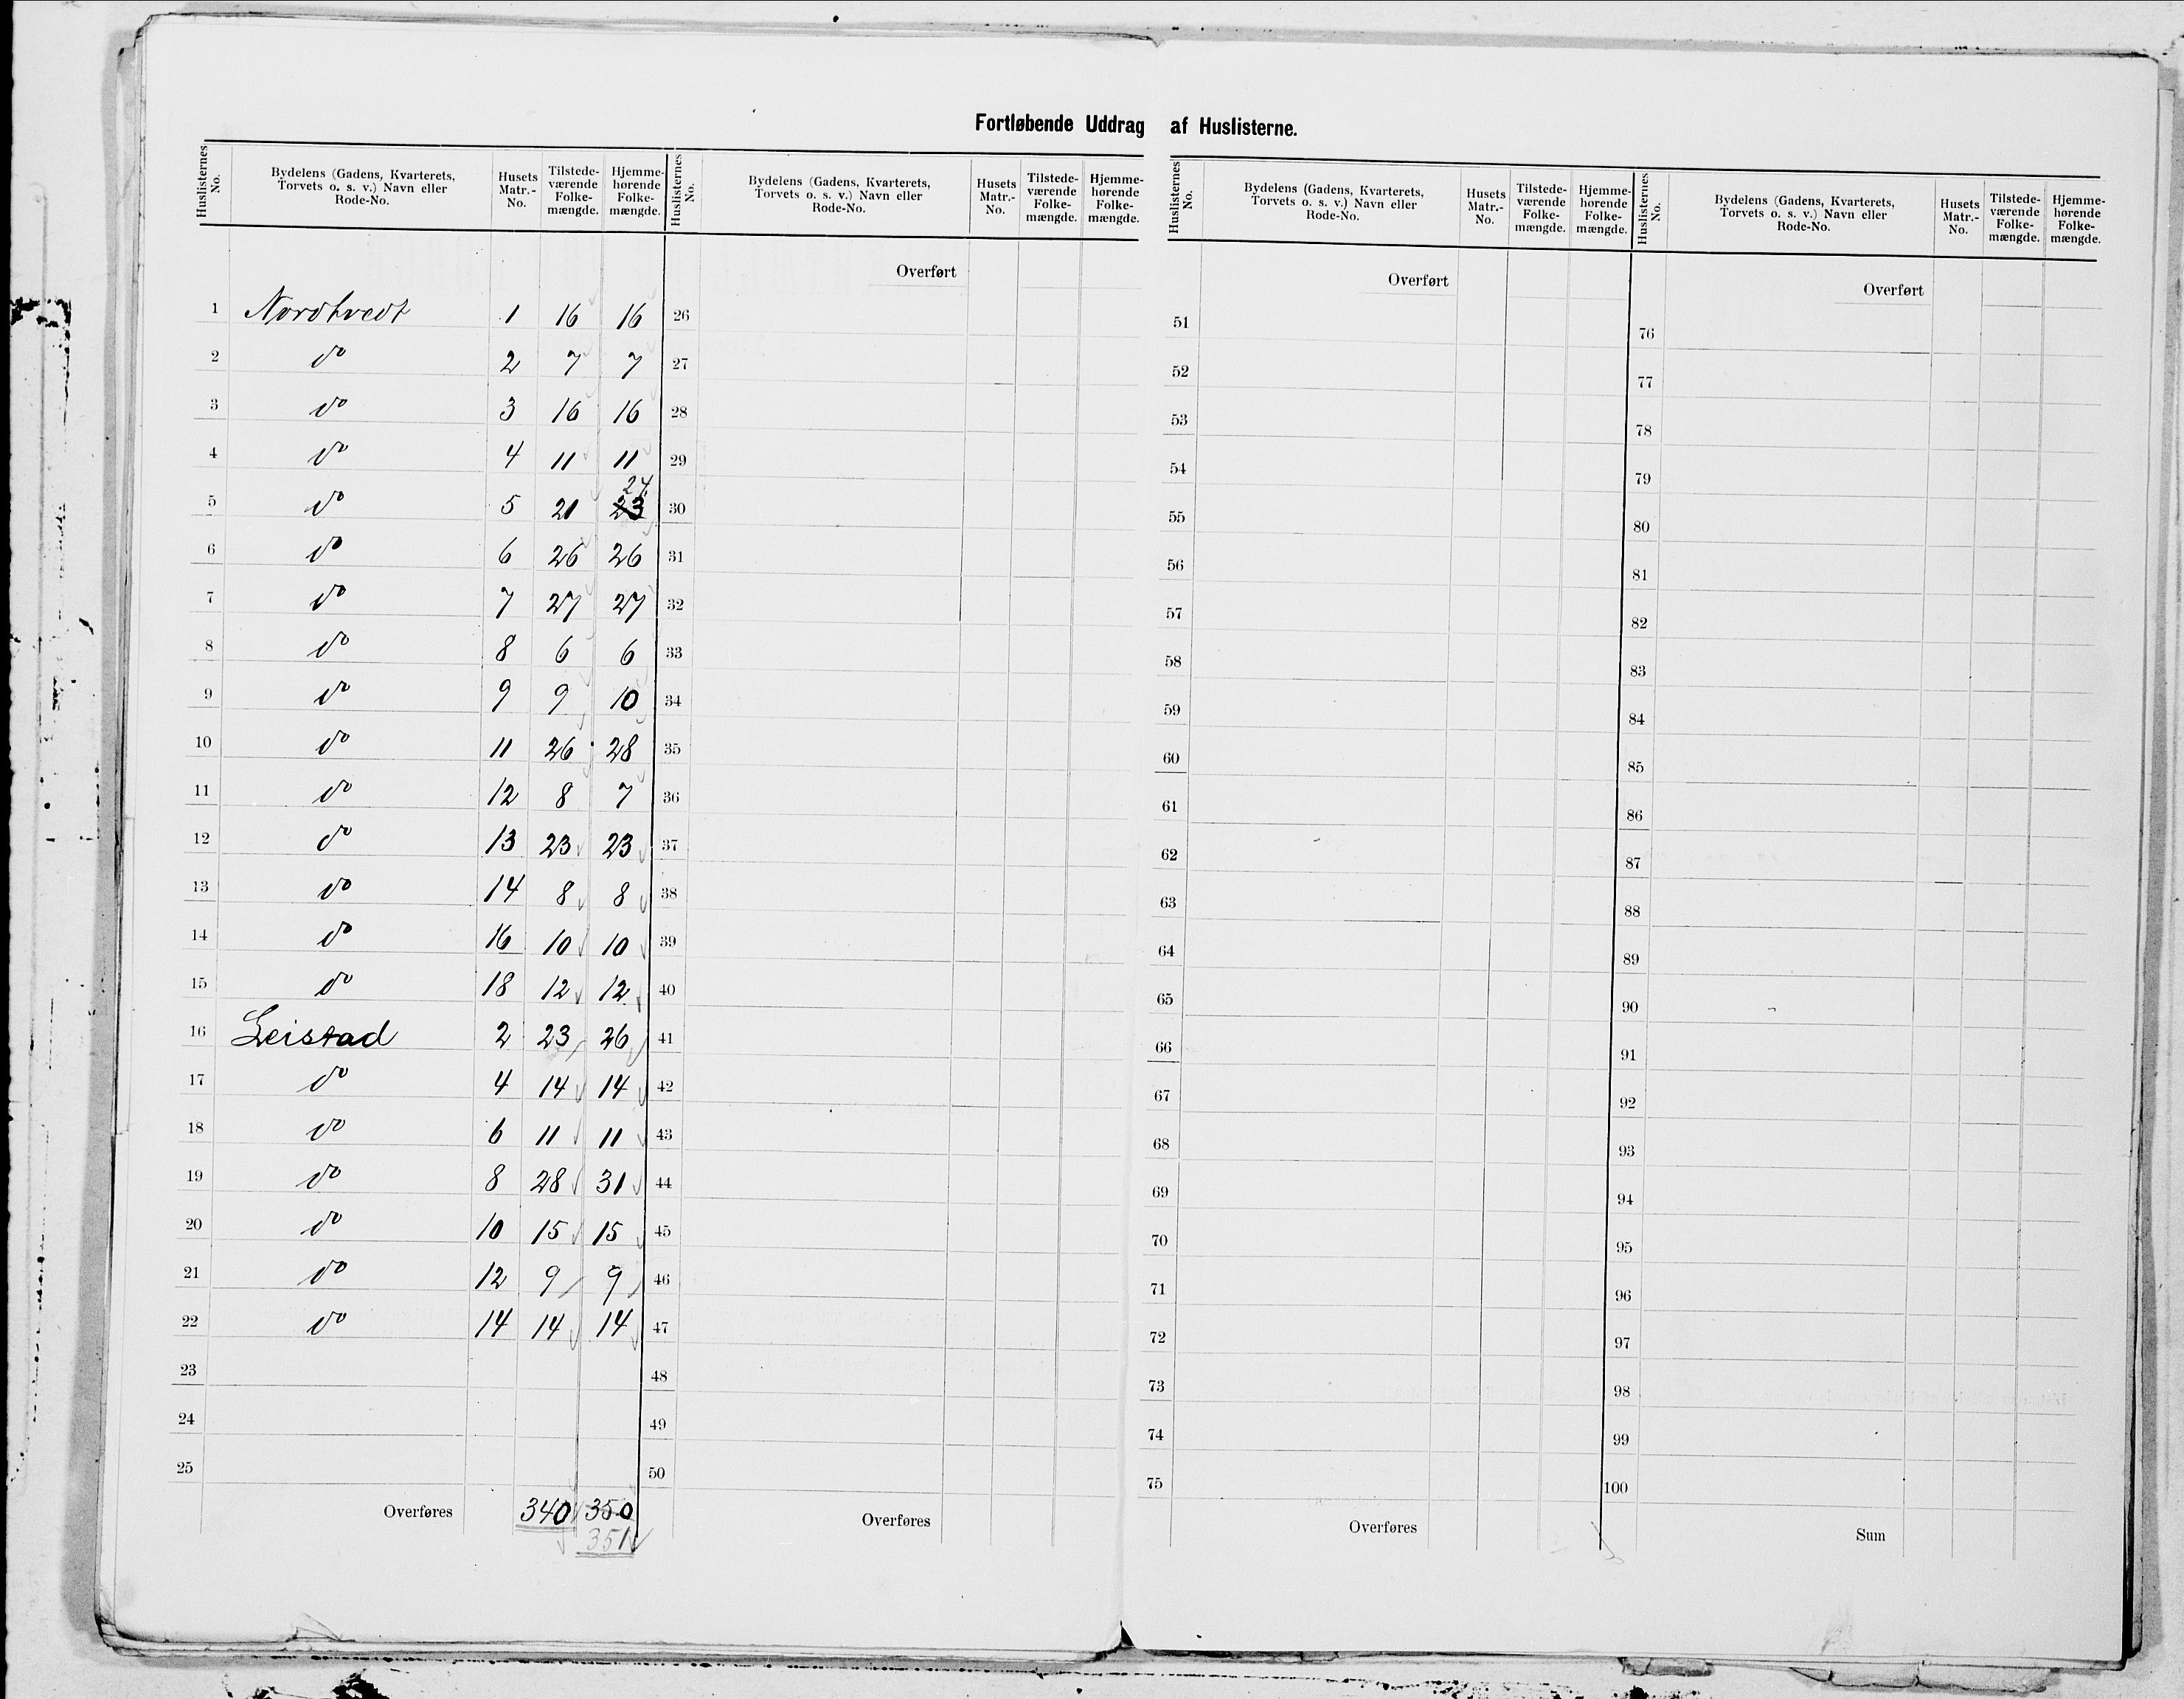 Fortløbende Uddrag af Huslisterne.
Huslisternes No. | Bydelens (Gadens, Kvarterets, Torvets o. s. v.) Navn eller Rode-No. | Husets Matr.-No. | Tilstede-værende Folke-mængde. | Hjemme-hørende Folke-mængde.
1 Nordtvedt 1 16 16
2 do 2 7 7
3 do 3 16 16
4 do 4 11 11
24
5 do 5 21 23
6 do 6 26 26
7 do 7 27 27
8 do 8 6 6
9 do 9 9 10
10 do 11 26 28
11 do 12 8 7
12 do 13 23 23
13 do 14 8 8
14 do 16 10 10
15 do 18 12 12
16 Leistad 2 23 26
17 do 4 14 14
18 do 6 11 11
19 do 8 28 31
20 do 10 15 15
21 do 12 9 9
22 do 14 14 14
23
24
25
Overføres 340 350
351
Huslisternes No. | Bydelens (Gadens, Kvarterets, Torvets o. s. v.) Navn eller Rode-No. | Husets Matr.-No. | Tilstede-værende Folke-mængde. | Hjemme-hørende Folke-mængde.
Overført
26
27
28
29
30
31
32
33
34
35
36
37
38
39
40
41
42
43
44
45
46
47
48
49
50
Overføres
Huslisternes No. | Bydelens (Gadens, Kvarterets, Torvets o. s. v.) Navn eller Rode-No. | Husets Matr.-No. | Tilstede-værende Folke-mængde. | Hjemme-hørende Folke-mængde.
Overført
51
52
53
54
55
56
57
58
59
60
61
62
63
64
65
66
67
68
69
70
71
72
73
74
75
Overføres
Huslisternes No. | Bydelens (Gadens, Kvarterets, Torvets o. s. v.) Navn eller Rode-No. | Husets Matr.-No. | Tilstede-værende Folke-mængde. | Hjemme-hørende Folke-mængde.
Overført
76
77
78
79
80
81
82
83
84
85
86
87
88
89
90
91
92
93
94
95
96
97
98
99
100
Sum